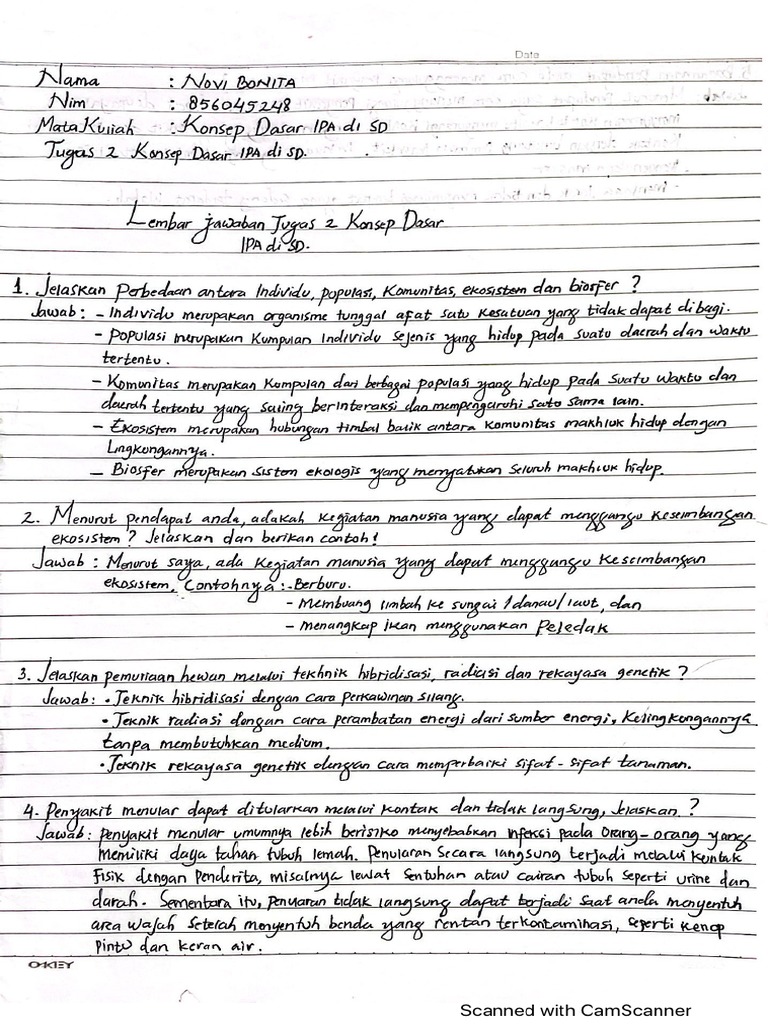 Date
Nama : NOVI BONITA
Nim : 856045248
Mata Kuliah : Konsep Dasar IPA di SD
Tugas 2 Konsep Dasar IPA di SD.
Lembar jawaban Tugas 2 Konsep Dasar
IPA di SD.
1. Jelaskan Perbedaan antara Individu, populasi, Komunitas, ekosistem dan biosfer ?
Jawab : - Individu merupakan organisme tunggal afat satu kesatuan yang tidak dapat dibagi.
- Populasi merupakan Kumpulan Individu sejenis yang hidup pada suatu daerah dan waktu
tertentu.
- Komunitas merupakan Kumpulan dari berbagai populasi yang hidup pada suatu waktu dan
daerah tertentu yang saling berinteraksi dan mempengaruhi satu sama lain.
- Ekosistem merupakan hubungan timbal balik antara komunitas makhluk hidup dengan
Lingkungannya.
- Biosfer merupakan sistem ekologis yang menyatukan seluruh makhluk hidup.
2. Menurut pendapat anda, adakah kegiatan manusia yang dapat mengganggu keseimbangan
ekosistem ? Jelaskan dan berikan contoh !
Jawab : Menurut saya, ada Kegiatan manusia yang dapat mengganggu Keseimbangan
ekosistem, Contohnya : - Berburu.
- membuang limbah ke sungai / danau / laut, dan
- menangkap ikan menggunakan Peledak
3. Jelaskan pemuliaan hewan melalui tekhnik hibridisasi, radiasi dan rekayasa genetik ?
Jawab : • Teknik hibridisasi dengan cara perkawinan silang.
• Teknik radiasi dengan cara perambatan energi dari sumber energi, Kelingkungannya
tanpa membutuhkan medium.
• Teknik rekayasa genetik dengan cara memperbaiki sifat - sifat tanaman.
4. Penyakit menular dapat ditularkan melalui kontak dan tidak langsung, Jelaskan ?
Jawab : Penyakit menular umumnya lebih berisiko menyebabkan infeksi pada orang - orang yang
memiliki daya tahan tubuh lemah. Penularan Secara langsung terjadi melalui kontak
Fisik dengan penderita, misalnya lewat Sentuhan atau cairan tubuh seperti urine dan
darah. Sementara itu, penularan tidak langsung dapat terjadi saat anda menyentuh
area wajah setelah menyentuh benda yang rentan terkontaminasi, seperti kenop
pintu dan keran air.
O-KEY
Scanned with CamScanner